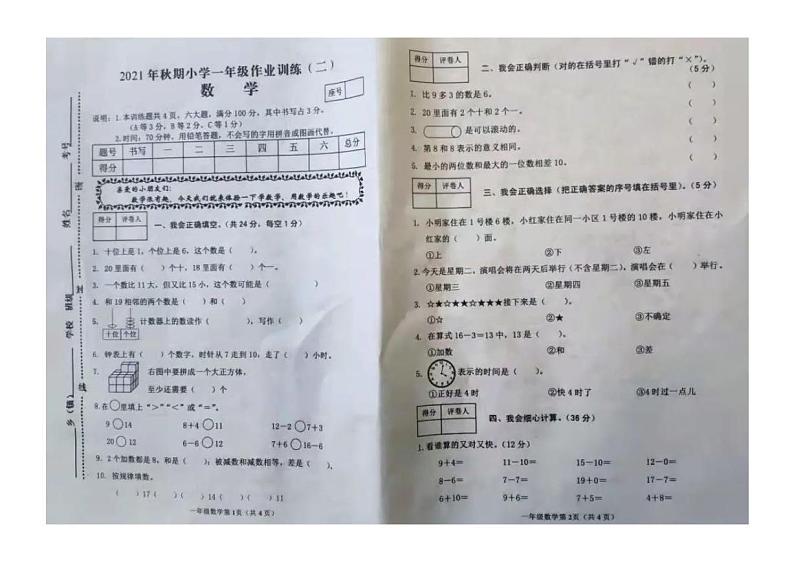 2021年秋期小学一年级作业训练（二）
数 学
座号
说明：1.本训练题共4页，六大题，满分100分，其中书写占3分。
（A等3分，B等2分，C等1分）
2.时间：70分钟，用铅笔答题，不会写的字用拼音或图画代替。
题号 书写 一 二 三 四 五 六 总分
得分
亲爱的小朋友们：
数学很有趣，今天我们就来体验一下学数学、用数学的乐趣吧！
得分 评卷人
一、我会正确填空。（共24分，每空1分）
1. 十位上是1，个位上是6，这个数是（ ）。
2. 20里面有（ ）个十，18里面有（ ）个一。
3. 一个数比11大，但又比15小，这个数可能是（ ）
4. 和19相邻的两个数是（ ）和（ ）
5. 计数器上的数读作（ ），写作（ ）
十位 个位
6. 钟表上有（ ）个数字，时针从7走到10，走了（ ）小时。
7. 右图中要拼成一个大正方体，
至少还需要（ ）个
8.在○里填上“＞”“＜”或“＝”。
9○14 8+4○11 12－2○7+3
20○12 6－6○12 7+6○16－6
9. 2个加数都是8，和是（ ）；被减数和减数相等，差是（ ）。
10. 按规律填数。
（ ）17（ ）（ ）14（ ）（ ）11
一年级数学第1页（共4页）
乡（镇） 学校 班级 姓名 考号
密 封 线
得分 评卷人
二、我会正确判断（对的在括号里打“√”错的打“×”）。
（5分）
1. 比9多3的数是6。 （ ）
2. 20里面有2个十和2个一。 （ ）
3. 是可以滚动的。 （ ）
4. 第8和8表示的意义相同。 （ ）
5. 最小的两位数和最大的一位数相差10。 （ ）
得分 评卷人
三、我会正确选择（把正确答案的序号填在括号里）。（5分）
1. 小明家住在1号楼6楼，小红家住在同一小区1号楼的10楼，小明家住在小
红家的（ ）面。
①上 ②下 ③左
2.今天是星期二，演唱会将在两天后举行（不含星期二），演唱会在（ ）举行。
①星期三 ②星期四 ③星期五
3. ☆★★★★☆★★★★接下来是（ ）。
①☆ ②★ ③不确定
4. 在算式16－3=13中，13是（ ）。
①加数 ②和 ③差
5. 表示的时间是（ ）。
①正好是4时 ②快4时了 ③4时过一点儿
得分 评卷人
四、我会细心计算。（36分）
1.看谁算的又对又快。（12分）
9+4= 11－10= 15－10= 12－0=
8－6= 7－7= 19+0= 17－7=
6+10= 9+6= 7+5= 4+8=
一年级数学第2页（共4页）